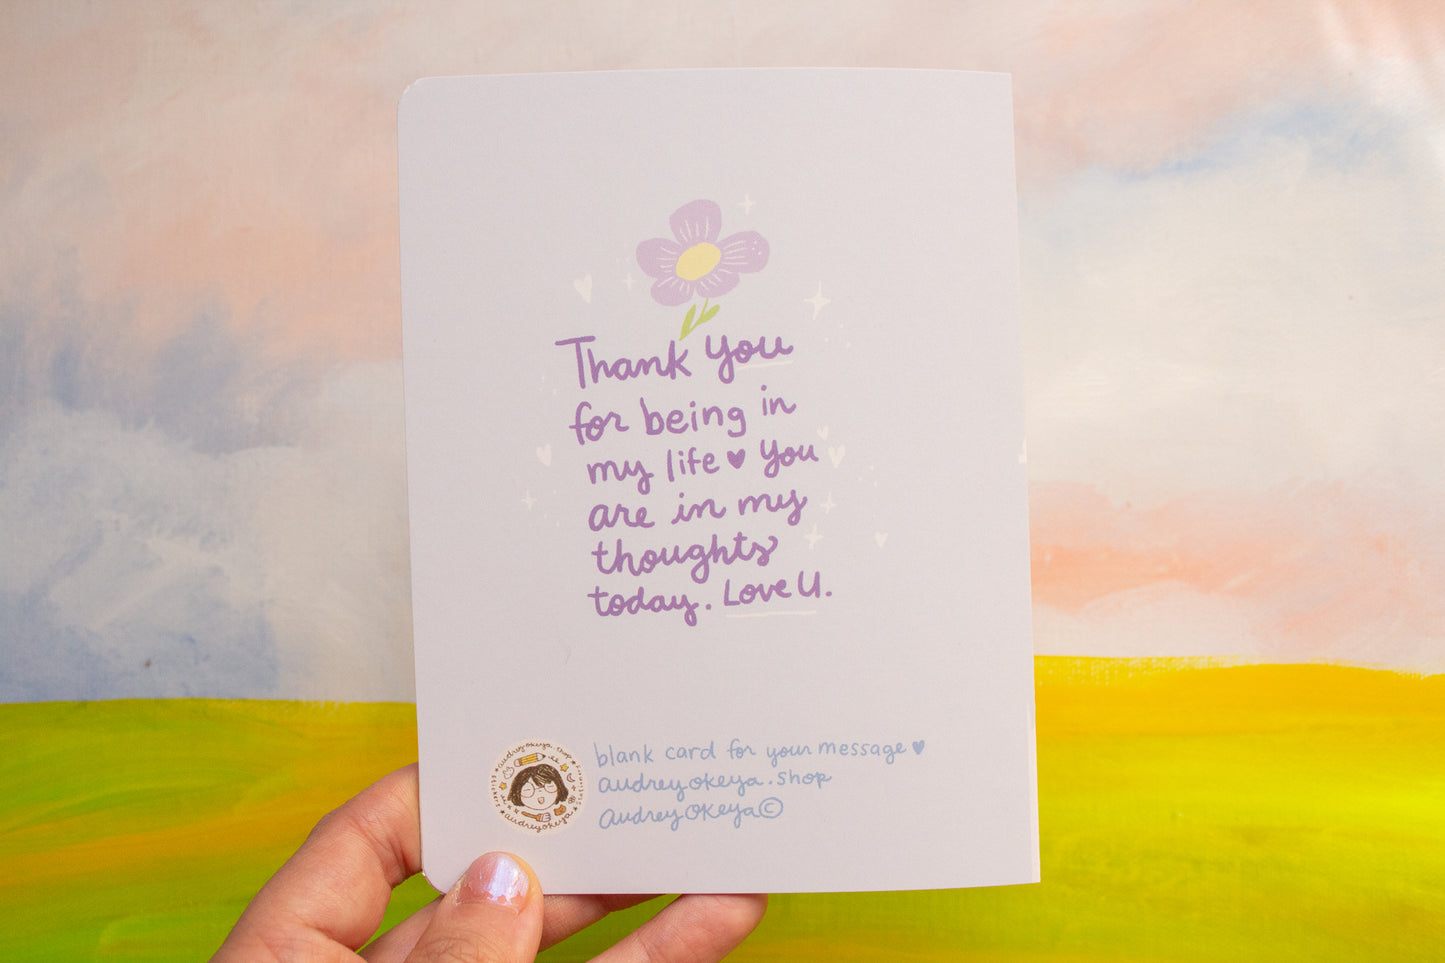 Thank You
for being in
my life ♥ You
are in my
thoughts
today. Love U.
blank card for your message ♥
audreyokeya.shop
audreyokeya©
audreyokeya.shop
stickers
audreyokeya